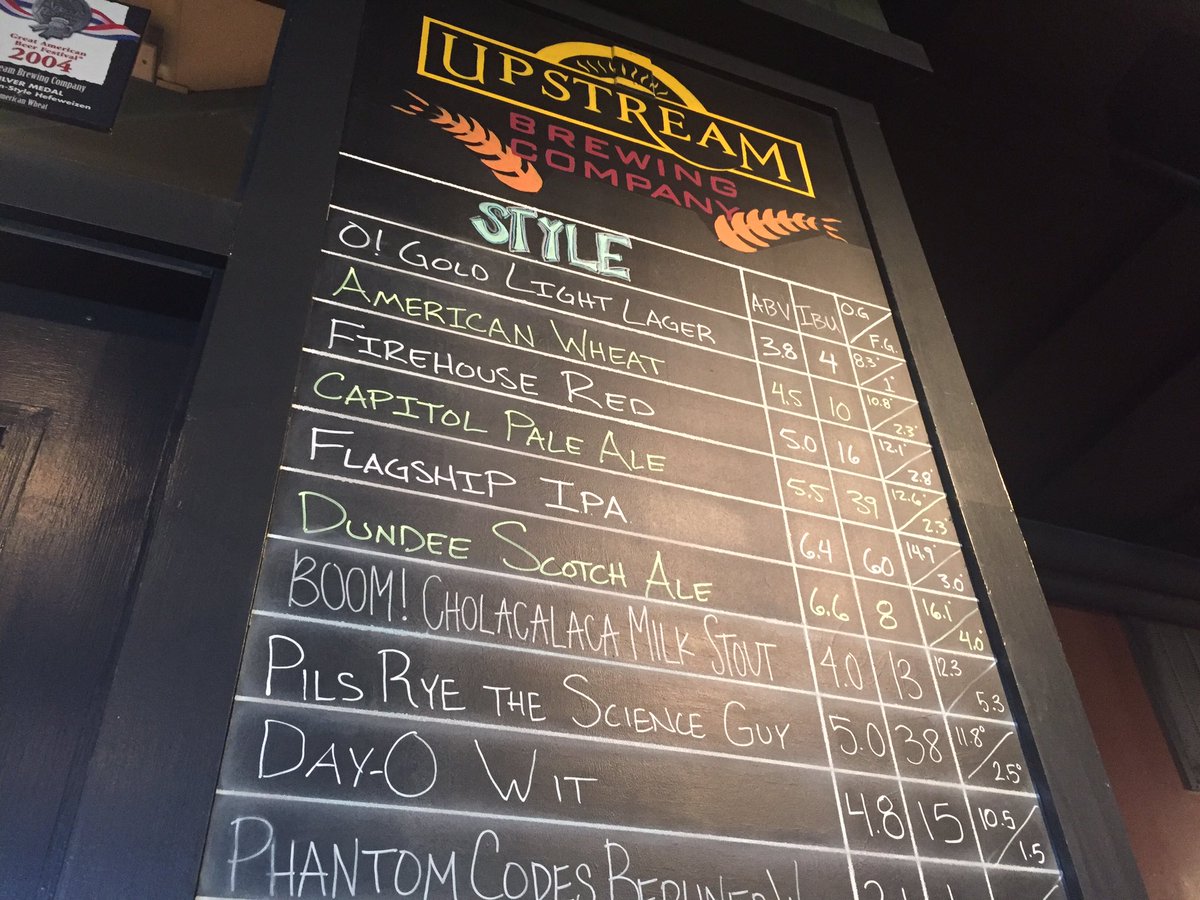 Great American
Beer Festival
2004
eam Brewing Company
LVER MEDAL
n-Style Hefeweizen
merican Wheat
UPSTREAM
BREWING
COMPANY
STYLE ABV IBU O.G F.G.
O! GOLD LIGHT LAGER 3.8 4 8.3° 1°
AMERICAN WHEAT 4.5 10 10.8° 2.3°
FIREHOUSE RED 5.0 16 12.1° 2.8°
CAPITOL PALE ALE 5.5 39 12.6° 2.3°
FLAGSHIP IPA 6.4 60 14.9° 3.0°
DUNDEE SCOTCH ALE 6.6 8 16.1° 4.0°
BOOM! CHOLACALACA MILK STOUT 4.0 13 12.3 5.3
PILS RYE THE SCIENCE GUY 5.0 38 11.8° 2.5°
DAY-O WIT 4.8 15 10.5 1.5
PHANTOM CODES BERLINER W